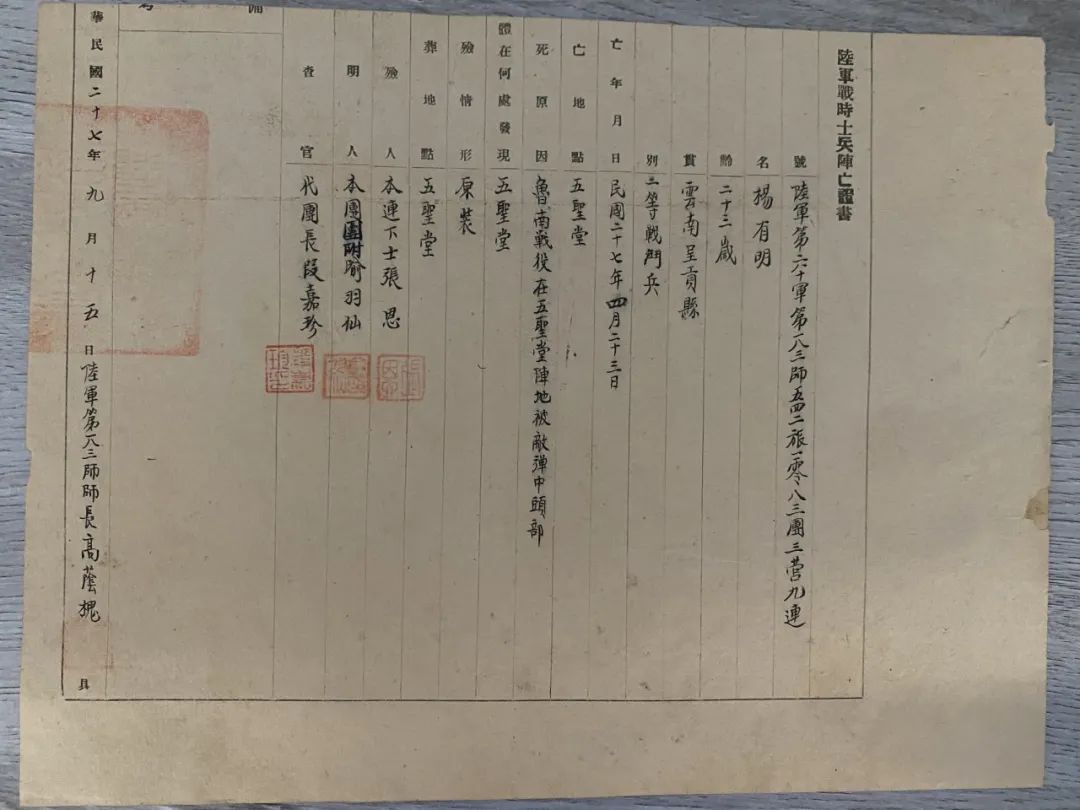 陸軍戰時士兵陣亡證書
號 陸軍第六十軍第一八三師五四二旅一零八三團三營九連
名 楊有明
齡 二十三歲
貫 雲南呈貢縣
別 二等戰鬥兵
亡年月日 民國二十七年四月二十三日
亡地點 五聖堂
死原因 魯南戰役在五聖堂陣地被敵彈中頭部
體在何處發現 五聖堂
殮情形 原裝
葬地點 五聖堂
殮人 本連下士張思
明人 本團團附喻羽仙
查官 代團長段嘉珍
備
華民國二十七年九月十五日陸軍第一八三師師長高蔭槐 具